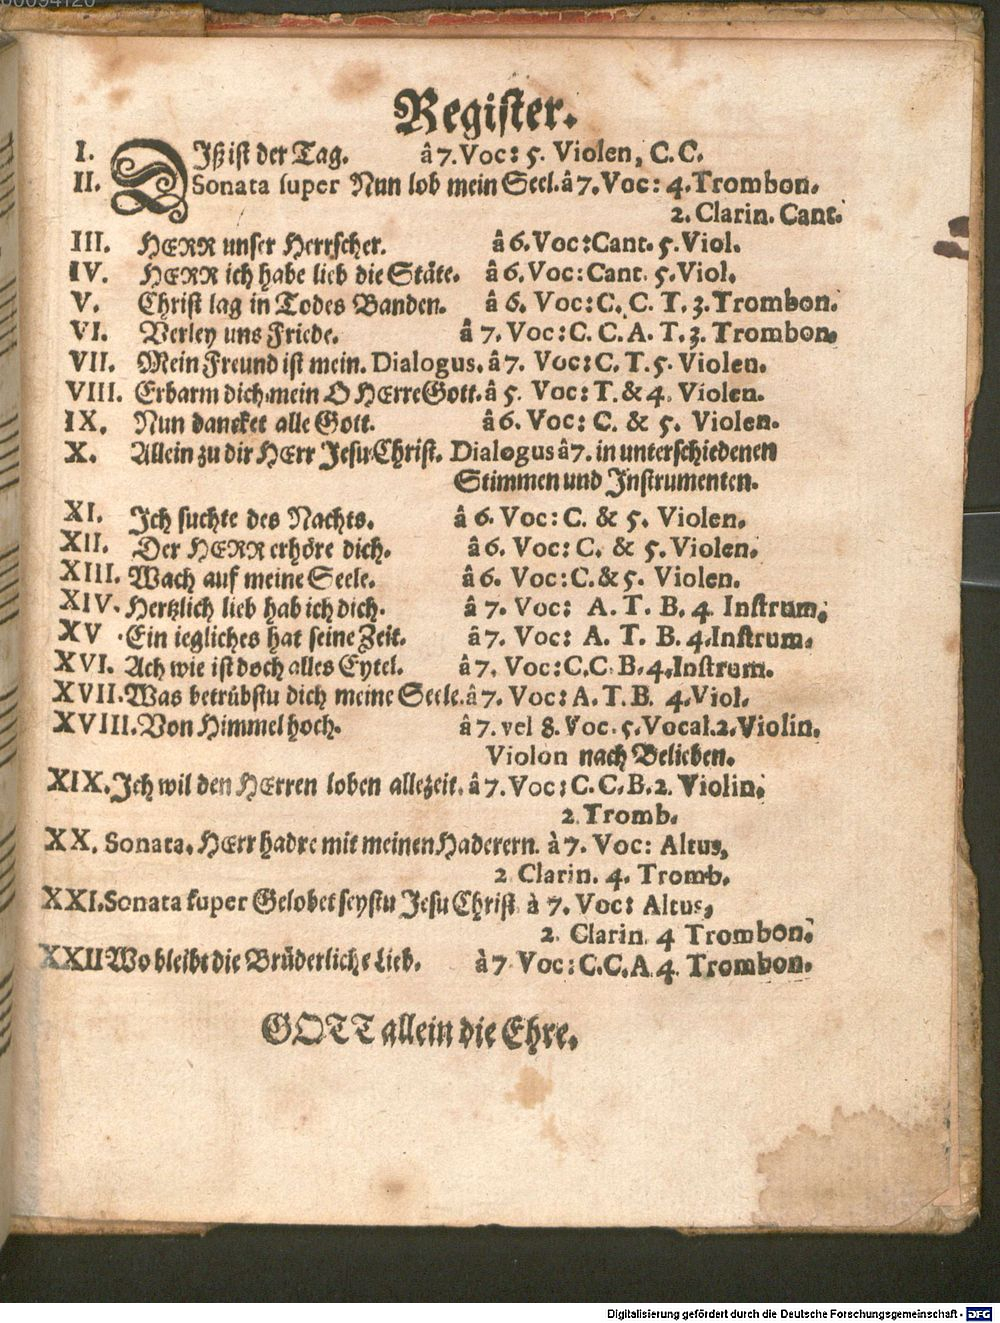 Register.
I. DIß ist der Tag. â 7. Voc: 5. Violen, C. C.
II. Sonata super Nun lob mein Seel. â 7. Voc: 4. Trombon.
2. Clarin. Cant.
III. HERR unser Herrscher. â 6. Voc: Cant. 5. Viol.
IV. HERR ich habe lieb die Stäte. â 6. Voc: Cant. 5. Viol.
V. Christ lag in Todes Banden. â 6. Voc: C. C. T. 3. Trombon.
VI. Verley uns Friede. â 7. Voc: C. C. A. T. 3. Trombon.
VII. Mein Freund ist mein. Dialogus. â 7. Voc: C. T. 5. Violen.
VIII. Erbarm dich mein O HErre Gott. â 5. Voc: T. & 4. Violen.
IX. Nun dancket alle Gott. â 6. Voc: C. & 5. Violen.
X. Allein zu dir HErr Jesu Christ. Dialogus â 7. in unterschiedenen
Stimmen und Instrumenten.
XI. Ich suchte des Nachts. â 6. Voc: C. & 5. Violen.
XII. Der HERR erhöre dich. â 6. Voc: C. & 5. Violen.
XIII. Wach auf meine Seele. â 6. Voc: C. & 5. Violen.
XIV. Hertzlich lieb hab ich dich. â 7. Voc: A. T. B. 4. Instrum.
XV. Ein iegliches hat seine Zeit. â 7. Voc: A. T. B. 4. Instrum.
XVI. Ach wie ist doch alles Eytel. â 7. Voc: C. C. B. 4. Instrum.
XVII. Was betrübstu dich meine Seele. â 7. Voc: A. T. B. 4. Viol.
XVIII. Von Himmel hoch. â 7. vel 8. Voc. 5. Vocal. 2. Violin.
Violon nach Belieben.
XIX. Ich wil den HErren loben allezeit. â 7. Voc: C. C. B. 2. Violin.
2. Tromb.
XX. Sonata. HErr hadre mit meinen Haderern. à 7. Voc: Altus,
2 Clarin. 4. Tromb.
XXI. Sonata super Gelobet seystu Jesu Christ à 7. Voc: Altus,
2. Clarin. 4 Trombon.
XXII Wo bleibt die Brüderliche Lieb. à 7 Voc: C. C. A 4. Trombon.
GOTT allein die Ehre.
Digitalisierung gefördert durch die Deutsche Forschungsgemeinschaft - DFG